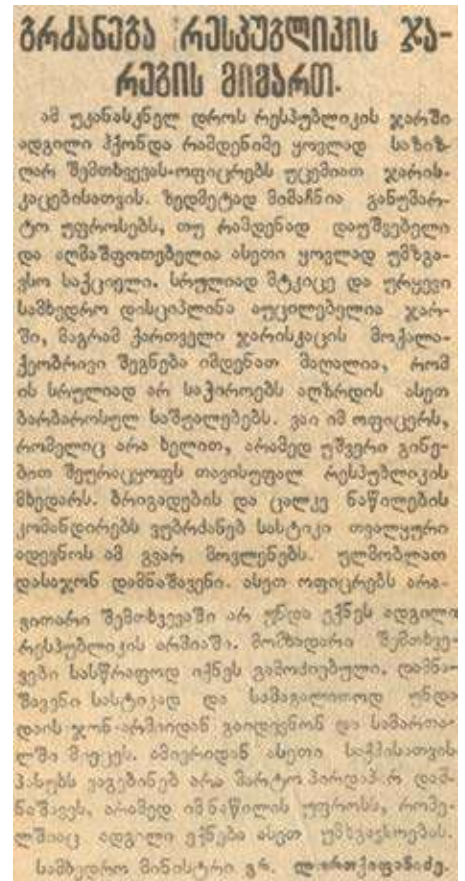 ბრძანება რესპუბლიკის ჯა-
რების მიმართ.
ამ უკანასკნელ დროს რესპუბლიკის ჯარში
ადგილი ჰქონდა რამდენიმე ყოვლად საზიზ-
ღარ შემთხვევას-ოფიცრებს უცემიათ ჯარის-
კაცებისათვის. ზედმეტად მიმაჩნია განუმარ-
ტო უფროსებს, თუ რამდენად დაუშვებელი
და აღმაშფოთებელია ასეთი ყოვლად უმზგა-
ვსო საქციელი. სრულიად მტკიცე და ურყევი
სამხედრო დისციპლინა აუცილებელია ჯარ-
ში, მაგრამ ქართველი ჯარისკაცის მოქალა-
ქეობრივი შეგნება იმდენათ მაღალია, რომ
ის სრულიად არ საჭიროებს აღზრდის ასეთ
ბარბაროსულ საშუალებებს. ვაი იმ ოფიცერს,
რომელიც არა ხელით, არამედ უშვერი გინე-
ბით შეურაცყოფს თავისუფალ რესპუბლიკის
მხედარს. ბრიგადების და ცალკე ნაწილების
კომანდირებს ვუბრძანებ სასტიკი თვალყური
ადევნოს ამ გვარ მოვლენებს. ულმობლათ
დასაჯონ დამნაშავენი. ასეთ ოფიცრებს არა-
ვითარი შემთხვევაში არ უნდა ექნეს ადგილი
რესპუბლიკის არმიაში. მომხადარი შემთხვე-
ვები სასწრაფოდ იქნეს გამოძიებული. დამნა-
შავენი სასტიკად და სამაგალითოდ უნდა
დაისჯონ-არმიიდან გაიდევნონ და სამართა-
ლში მიეცეს. ამიერიდან ასეთი საქმისათვის
პასუხს ვაგებინებ არა მარტო პირდაპირ დამ-
ნაშავეს, არამედ იმ ნაწილის უფროსს, რომე-
ლშიაც ადგილი ექნება ასეთ უმზგავსოებას.
სამხედრო მინისტრი გრ. ლორთქიფანიძე.